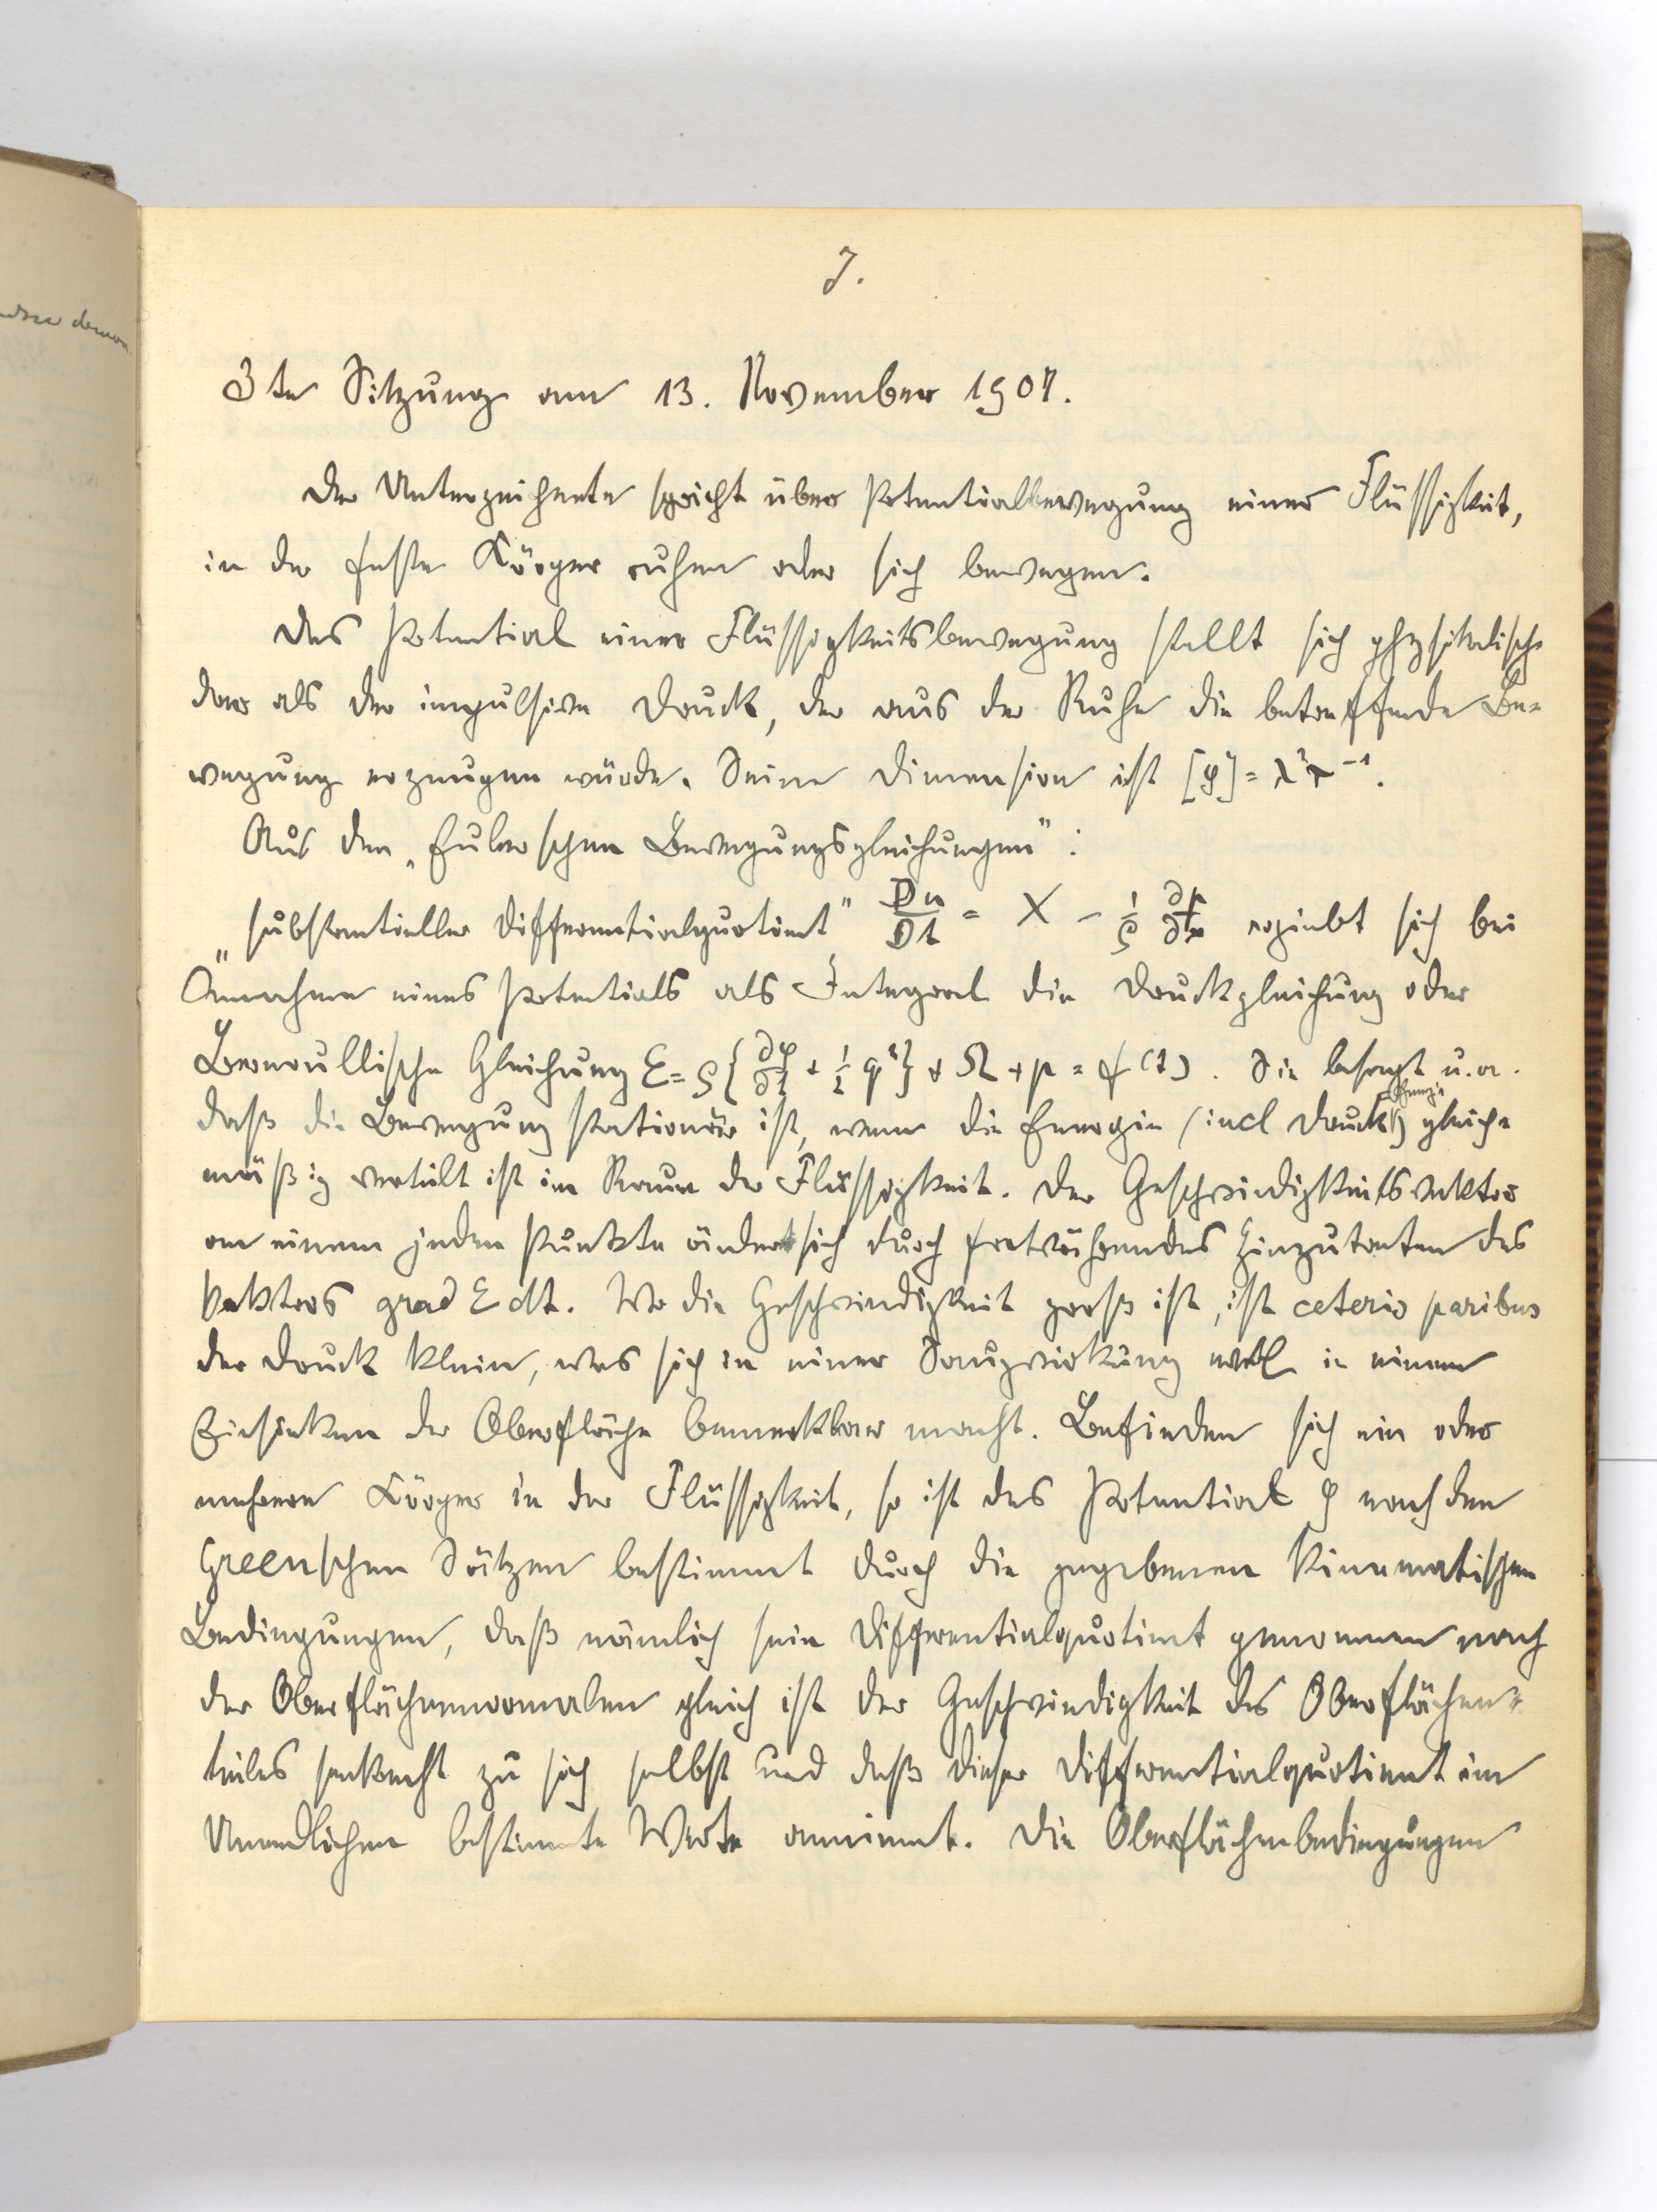 7.
3te Sitzung am 13. November 1907.
Der Unterzeichnete spricht über Potentialbewegung einer Flüssigkeit,
in der feste Körper ruhen oder sich bewegen.
Das Potential einer Flüssigkeitsbewegung stellt sich physikalisch
dar als der impulsive Druck, der aus der Ruhe die betreffende Be-
wegung erzeugen würde. Seine Dimension ist [φ] = λ²τ⁻¹.
Aus den „Eulerschen Bewegungsgleichungen“:
„substantieller Differentialquotient“ Du/Dt = X − 1/ρ ∂p/∂x ergiebt sich bei
Annahme eines Potentials als Integral die Druckgleichung oder
Bernoullische Gleichung E = ρ{∂φ/∂t + 1/2 q²} + Ω + p = f(t). Sie besagt u.a.
daß die Bewegung stationär ist, wenn die Energie (incl Druckenergie) gleich-
mäßig verteilt ist im Raum der Flüssigkeit. Der Geschwindigkeitsvektor
an einem jeden Punkte ändert sich durch fortwährendes Hinzutreten des
Vektors grad E dt. Wo die Geschwindigkeit groß ist, ist ceteris paribus
der Druck klein, was sich in einer Saugwirkung in einem
Einsinken der Oberfläche bemerkbar macht. Befinden sich ein oder
mehrere Körper in der Flüssigkeit, so ist das Potential φ nach den
Greenschen Sätzen bestimmt durch die gegebenen kinematischen
Bedingungen, daß nämlich sein Differentialquotient genommen nach
der Oberflächennormalen gleich ist der Geschwindigkeit des Oberflächen-
teiles senkrecht zu sich selbst und daß dieser Differentialquotient im
Unendlichen bestimmte Werte annimmt. Die Oberflächenbedingungen